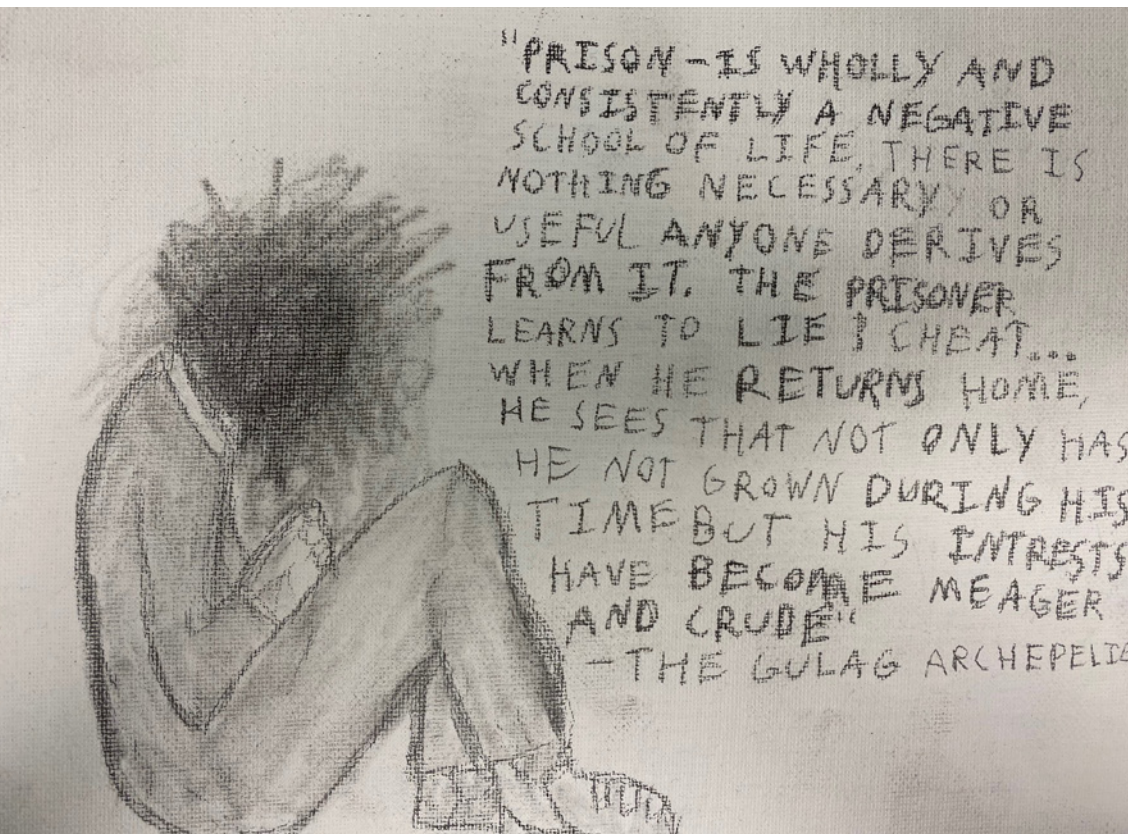 "PRISON-IS WHOLLY AND
CONSISTENTLY A NEGATIVE
SCHOOL OF LIFE, THERE IS
NOTHING NECESSARY OR
USEFUL ANYONE DERIVES
FROM IT. THE PRISONER
LEARNS TO LIE & CHEAT...
WHEN HE RETURNS HOME,
HE SEES THAT NOT ONLY HAS
HE NOT GROWN DURING HIS
TIME BUT HIS INTRESTS
HAVE BECOME MEAGER
AND CRUDE"
-THE GULAG